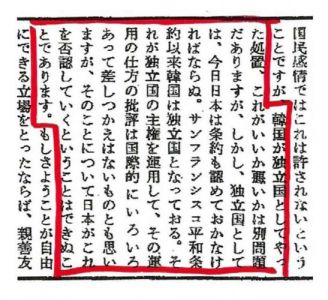 国民感情ではこれは許されないという
ことですが、韓国が独立国としてやっ
た処置、これがいいか悪いかは別問題
だありますが、しかし、独立国として
は、今日日本は条約も認めておかなけ
ればならぬ。サンフランシスコ平和条
約以来韓国は独立国となっておる。そ
れが独立国の主権を運用して、その運
用の仕方の批評は国際的にいろいろ
あって差しつかえはないものとも思い
ますが、そのことについて日本がこれ
を否認していくということはできぬこ
とであります。もしさようことが自由
にできる立場をとったならば、親善友